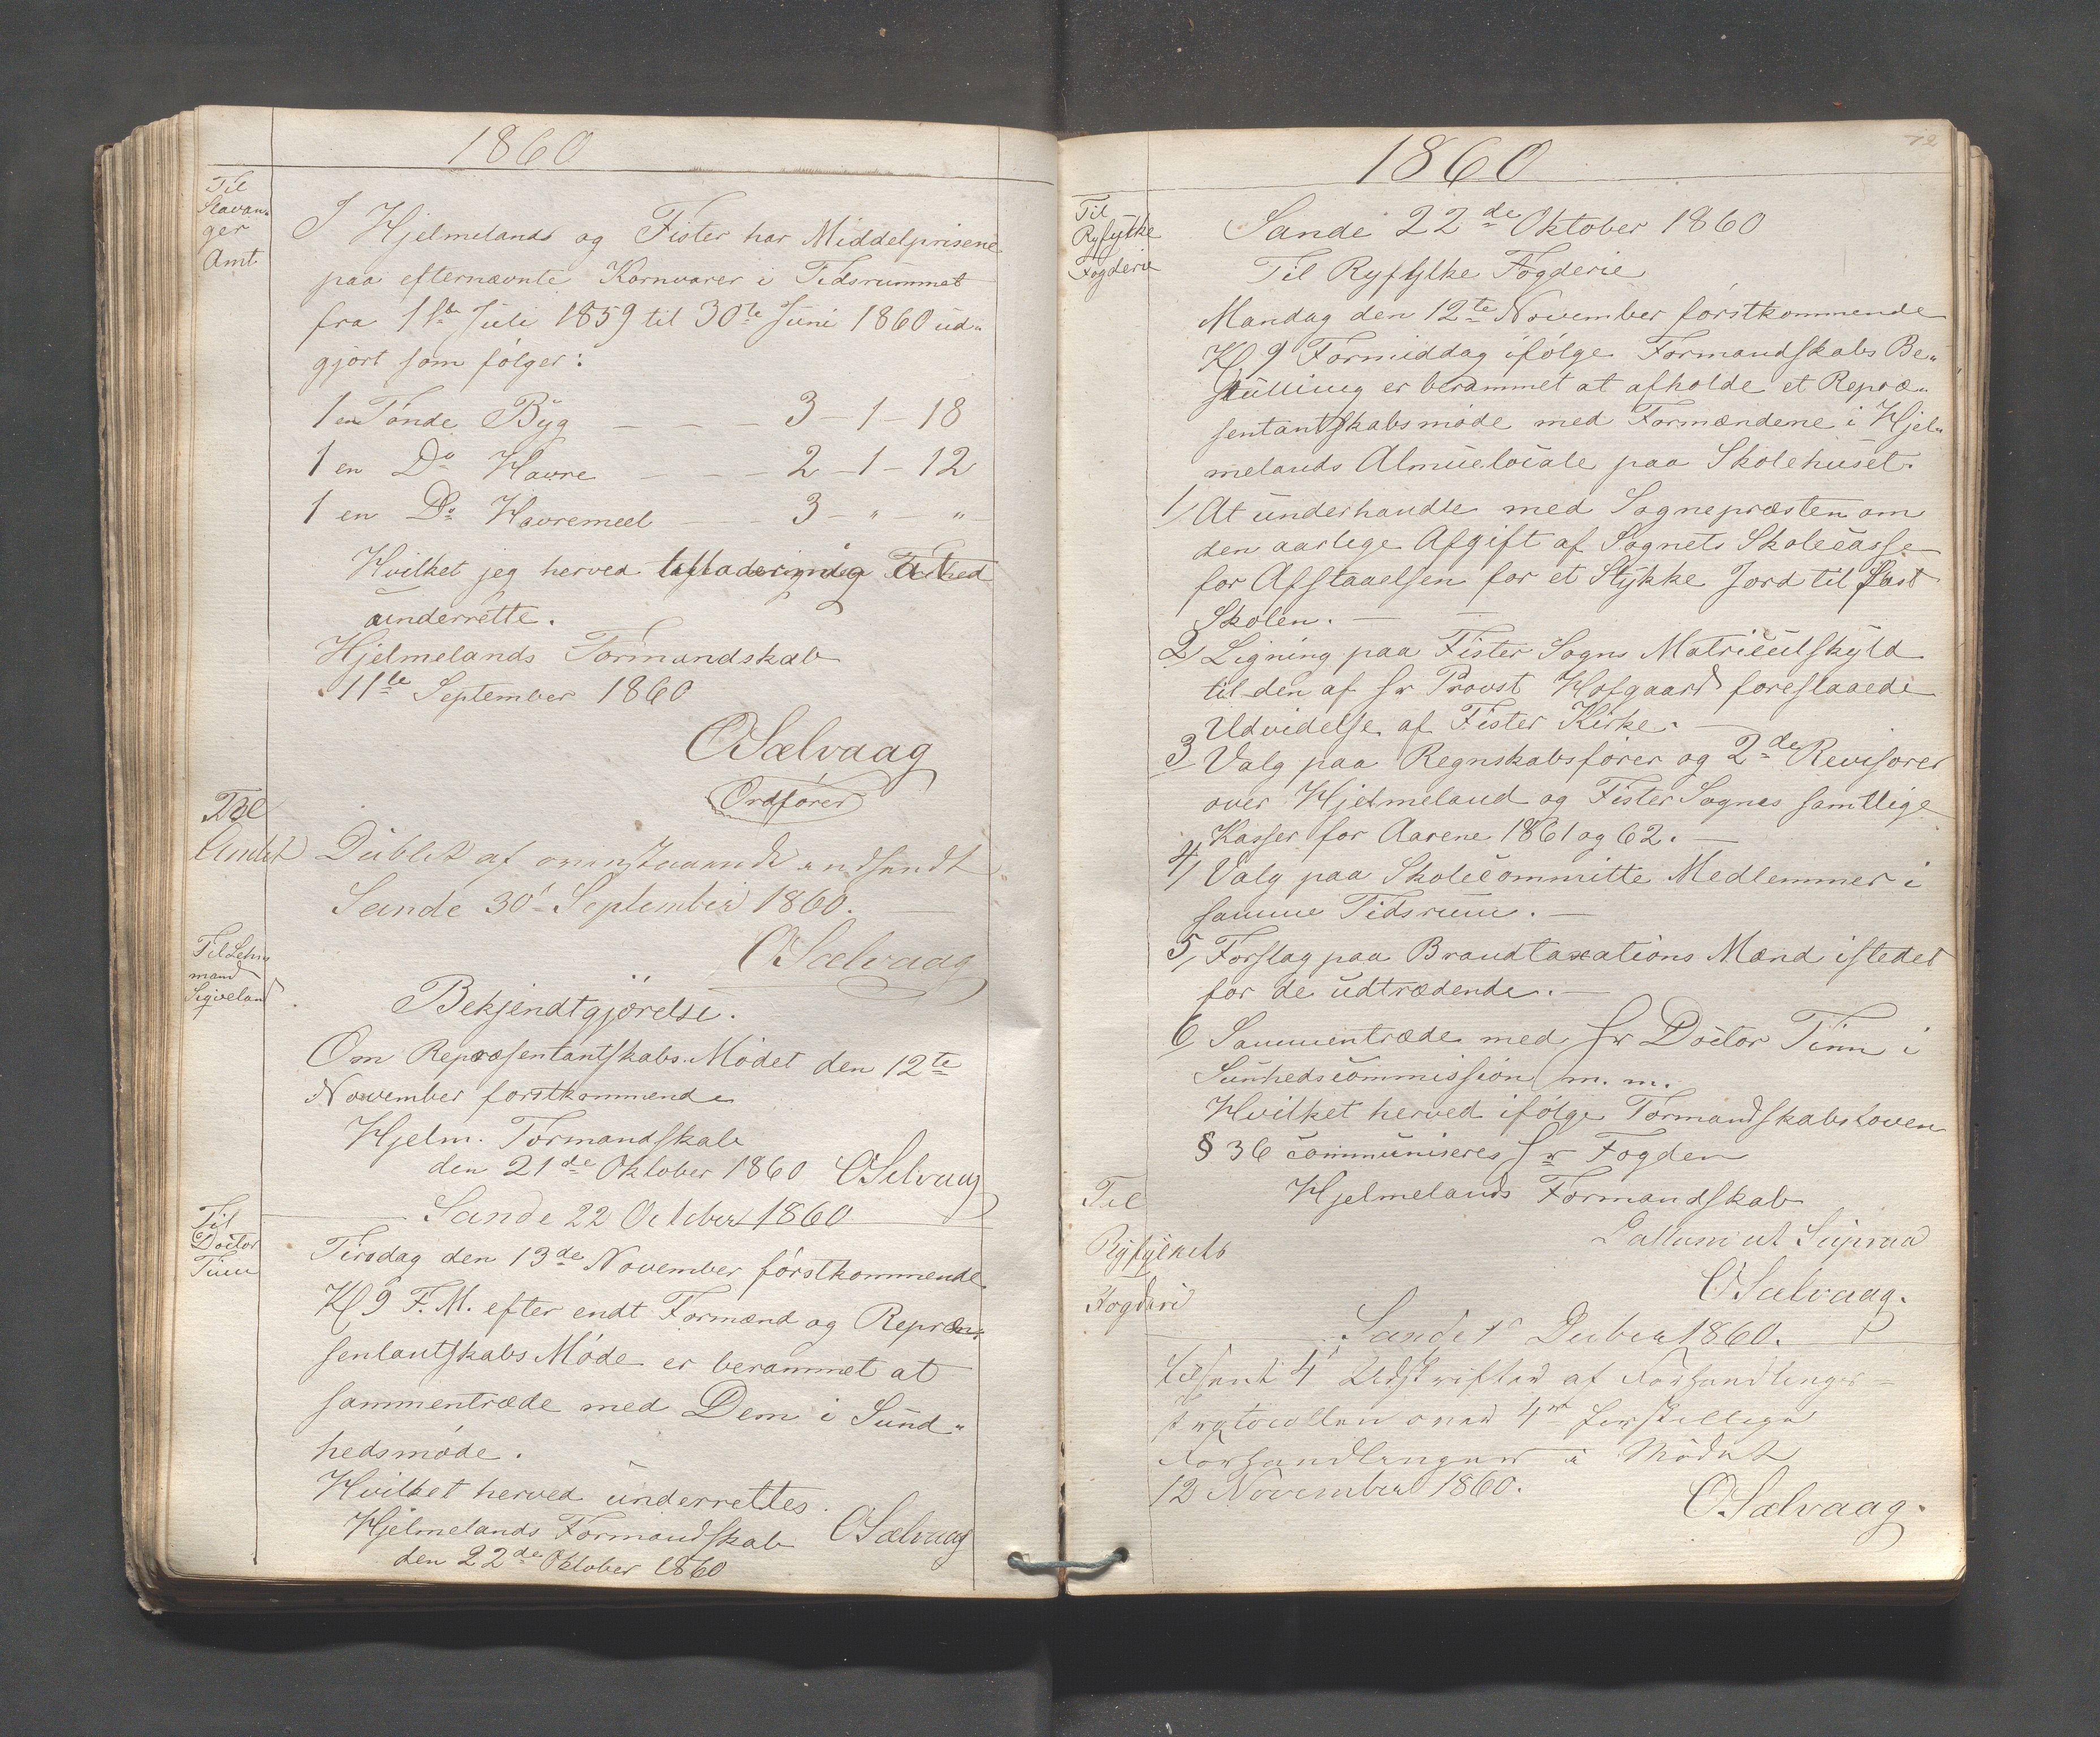 1860
Til
Stavan-
ger
Amt
I Hjelmelands og Fister har Middelprisene
paa efternævnte Kornvarer i Tidsrummet
fra 1ste Juli 1859 til 30te Juni 1860 ud-
gjort som følger:
1 en Tønde Byg — — — 3 – 1 – 18
1 en Do Havre — — — 2 – 1 – 12
1 en Do Havremeel — — 3 – " – "
Hvilket jeg herved
underrette.
Hjelmelands Formandskab
11te September 1860
OSælvaag
Ordfører
Til
Amtet
Dublet af ovenstaaende indsendt
Sande 30' September 1860. —
OSælvaag
Til Lehn
mand
Sigveland
Bekjendtgjørelse.
Om Repræsentantskabs Mødet den 12te
November førstkommende
Hjelm. Formandskab
den 21de Oktober 1860 OSelvaag
Sande 22 October 1860
Til
Doctor
Tinn
Tirsdag den 13de November førstkommende
Kl 9 F.M. efter endt Formænd og Repræ-
sentantskabs Møde er berammet at
sammentræde med Dem i Sund-
hedsmøde.
Hvilket herved underrettes.
Hjelmelands Formandskab OSælvaag
den 22de Oktober 1860
72
1860
Til
Ryfylke
Fogderie
Sande 22de Oktober 1860
Til Ryfylke Fogderie
Mandag den 12te November førstkommende
Kl 9 Formiddag ifølge Formandskabs Be-
slutning er berammet at afholde et Repræ-
sentantskabsmøde med Formændene i Hjel-
melands Almuelocale paa Skolehuset.
1/ At underhandle med Sognepræsten om
den aarlige Afgift af Sognets Skolecasse
for Afstaaelsen for et Stykke Jord til fast
Skolen. —
2/ Ligning paa Fister Sogns Matriculskyld
til den af Hr Provst Hofgaard foreslaaede
Udvidelse af Fister Kirke. —
3 Valg paa Regnskabsfører og 2de Revisorer
over Hjelmeland og Fister Sognes samtlige
Kasser for Aarene 1861 og 62. —
4/ Valg paa Skolecommitte Medlemmer i
samme Tidsrum. —
5/ Forslag paa Brandtaxations Mænd istedet
for de udtrædende. —
6/ Sammentræde med Hr Doctor Tinn i
Sunhedscommission m. m.
Hvilket herved ifølge Formandskabsloven
§ 36 communiseres Hr Fogden
Hjelmelands Formandskab
Datum ut Supraa
OSælvaag.
Til
Ryfylkets
Fogderi
Sande 1' Decbr 1860.
Tilsent 4' Udskrifter af Forhandlings-
protocollen over 4re forskellige
Forhandlinger i Mødet
12 November 1860.
OSælvaag.